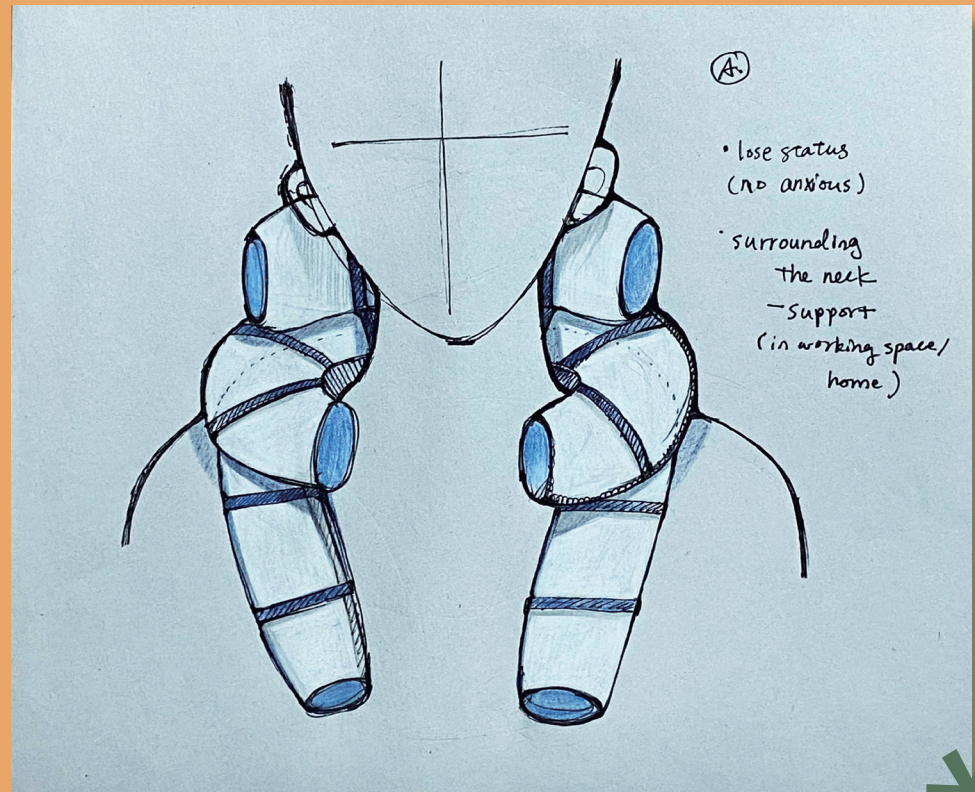 A.
• lose status
(no anxious)
• surrounding
the neck
- support
(in working space/
home)